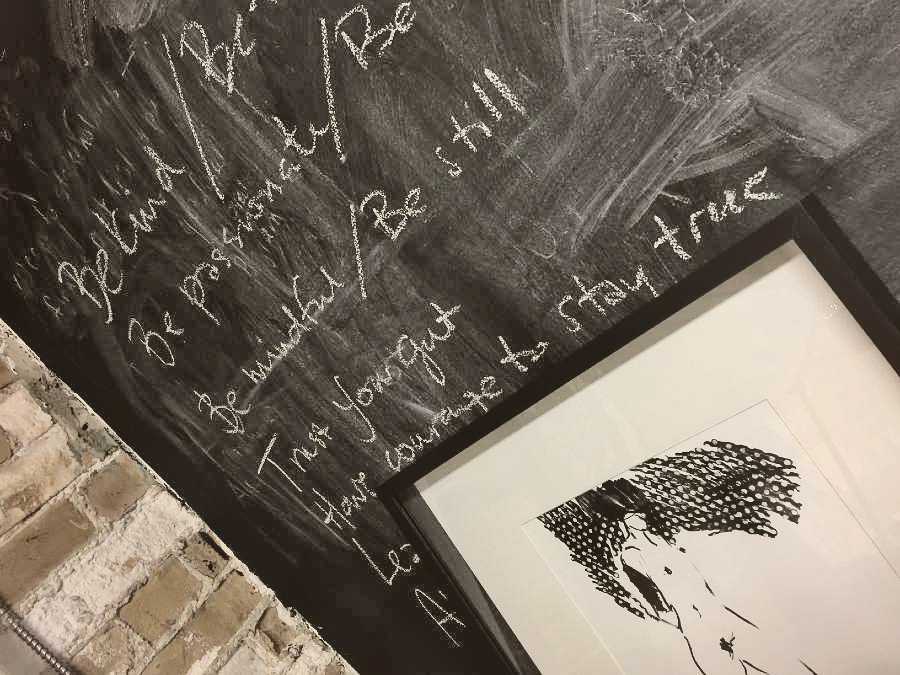 Be kind / Be
Be passionate / Be
Be mindful / Be still
Trust your gut
Have courage to stay true
Le
A